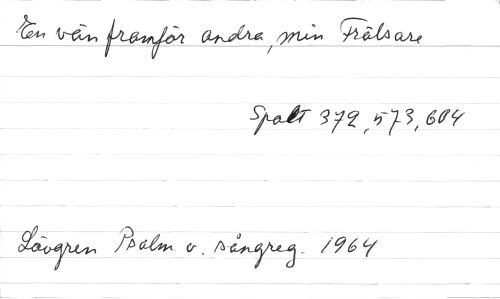 En vän framför andra, min Frälsare
Spalt 372, 573, 604
Lövgren Psalm o. sångreg. 1964